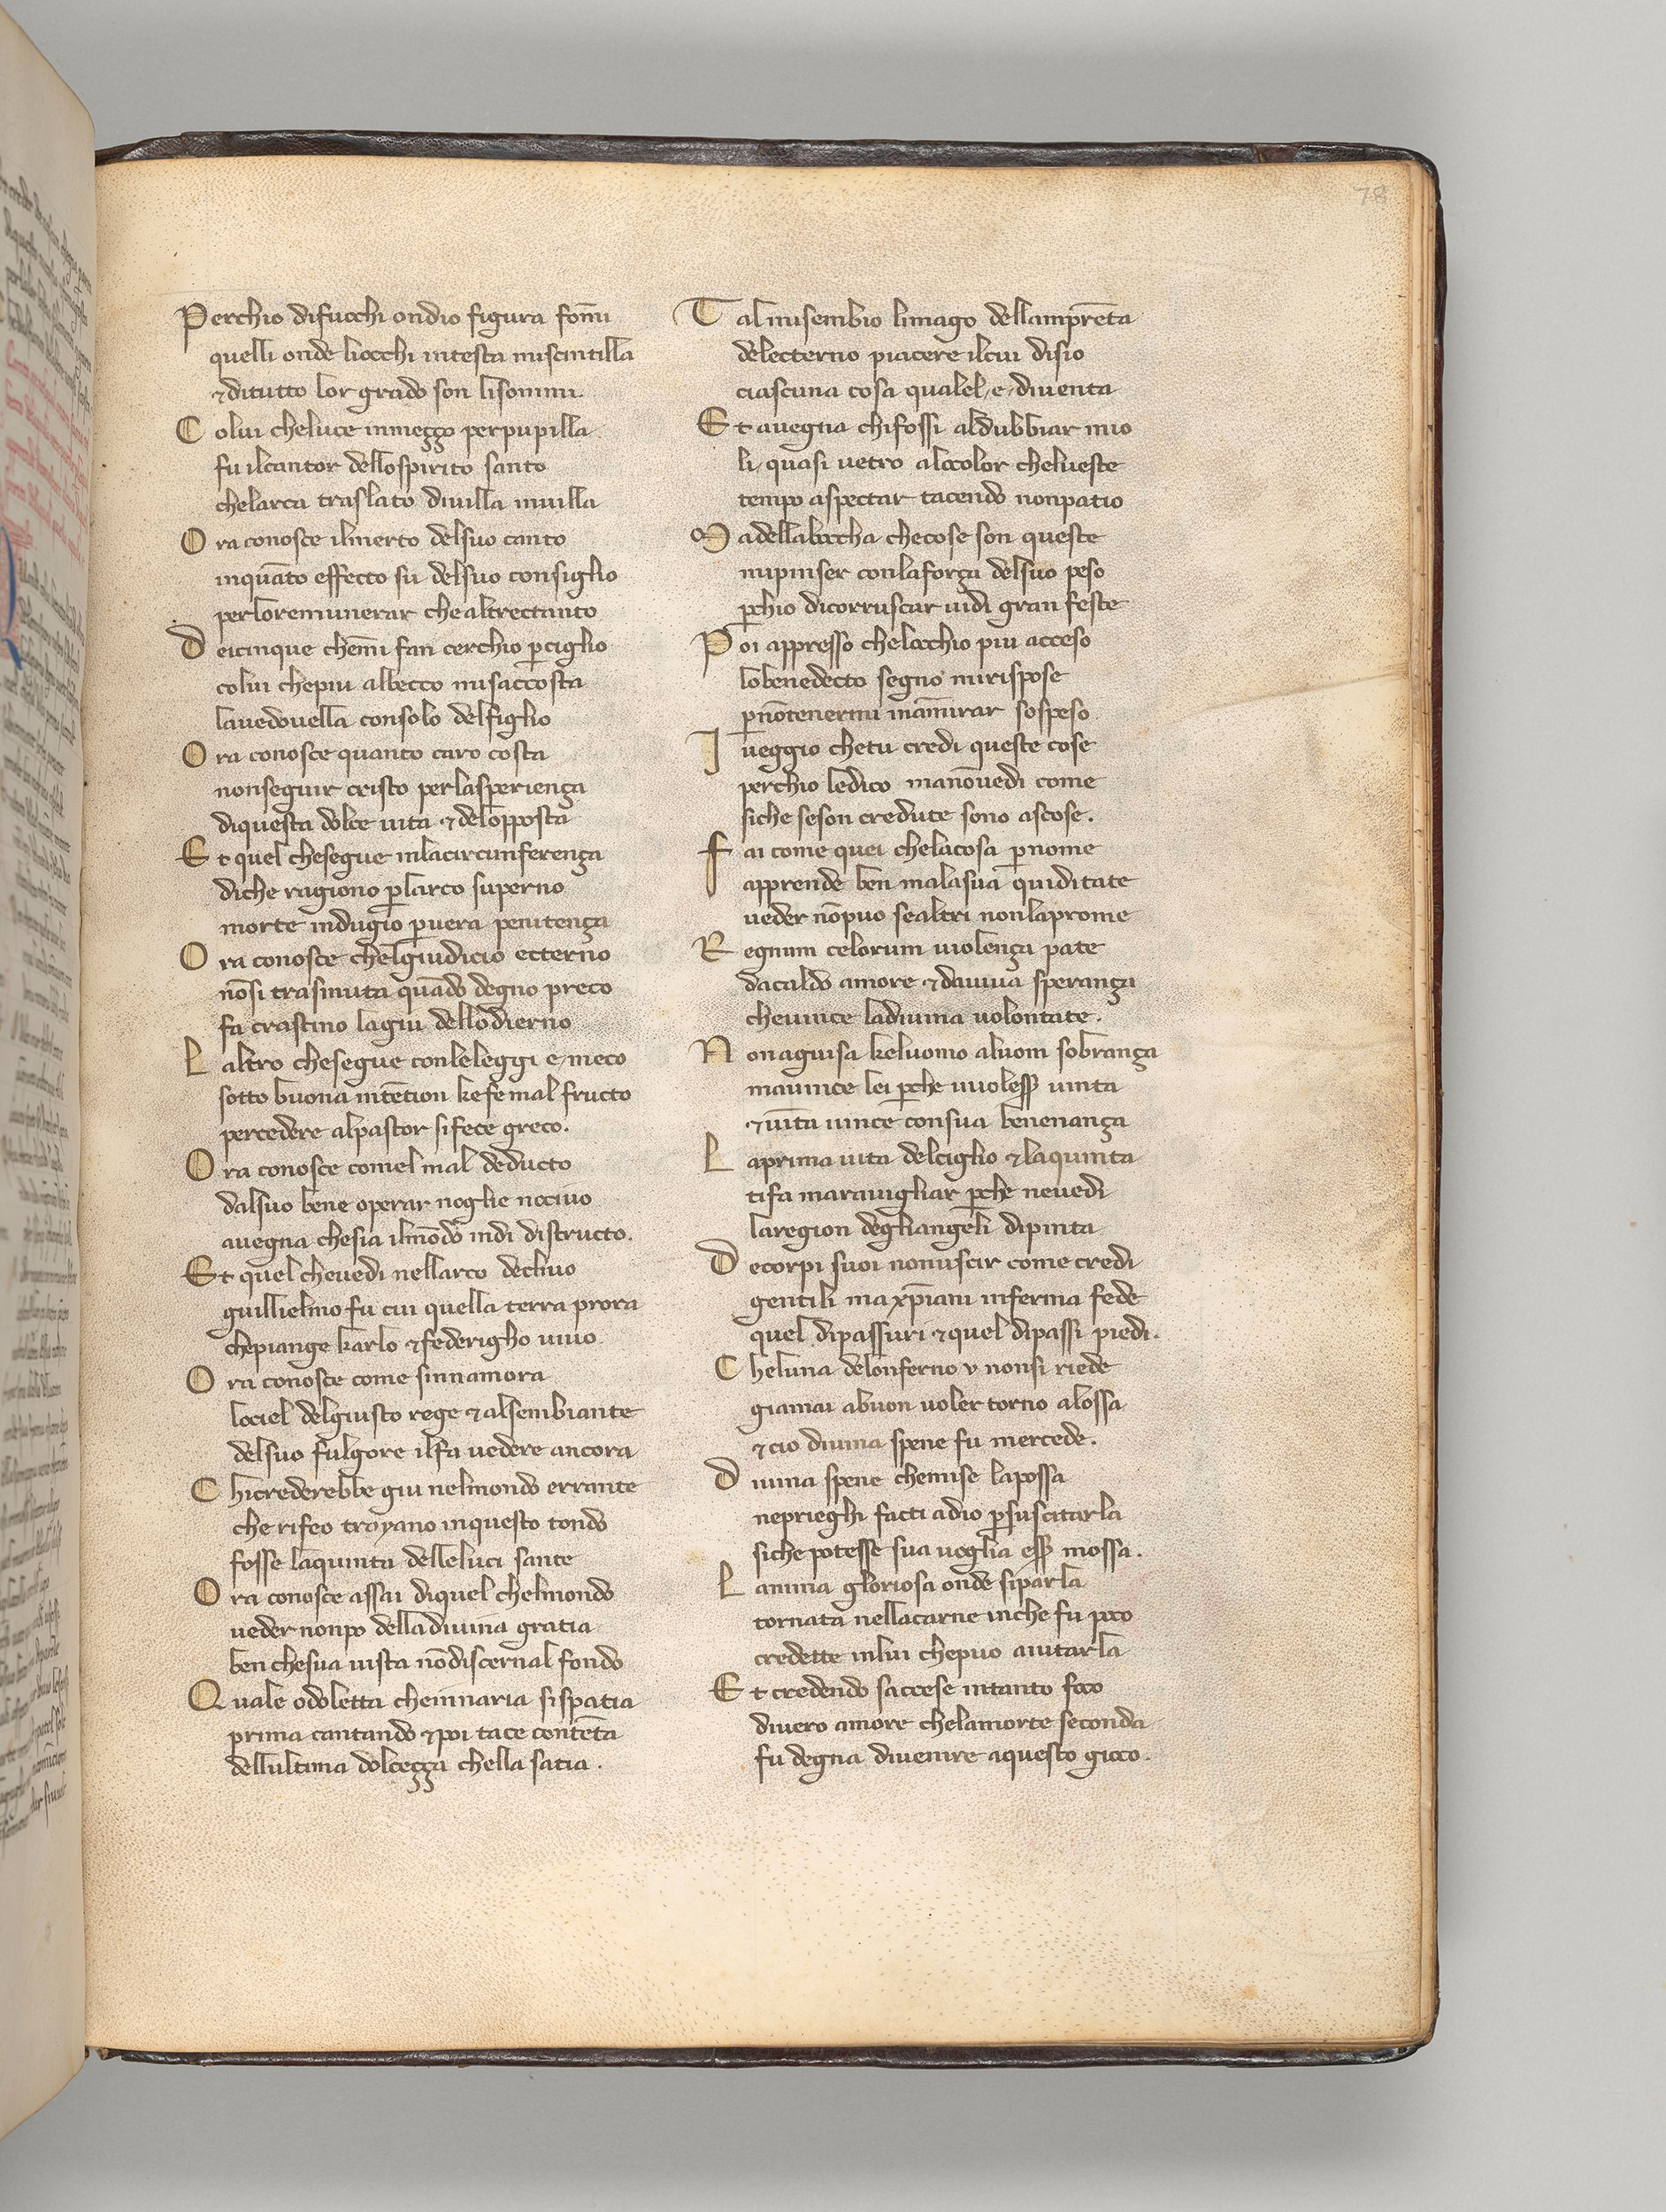 78
Perchio difuochi ondio figura fom̄i
quelli onde liocchi intesta miscintilla
⁊ditutto lor grado son lisommi
Colui cheluce inmeçço perpupilla
fu ilcantor dellospirito santo
chelarca traslato diuilla inuilla
Ora conosce ilmerto delsuo canto
inquāto effecto fu delsuo consiglio
perloremunerar chealtrectanto
Deicinque chem̄i fan cerchio p̱ciglio
colui chepiu albecco misaccosta
lauedouella consolo delfiglio
Ora conosce quanto caro costa
nonseguir cristo perlasperiença
diquesta dolce uita ⁊delopposta
Et quel chesegue inlacircunferença
diche ragiono p̱larco superno
morte indugio p̱uera penitença
Ora conosce chelgiudicio ecterno
nōsi trasmuta quādo degno preco
fa crastino lagiu dellodierno
Laltro chesegue conleleggi e meco
sotto buona intētion kefe mal fructo
percedere alpastor sifece greco.
Ora conosce comel mal deducto
dalsuo bene operar noglie nociuo
auegna chesia ilmōdo indi distructo.
Et quel cheuedi nellarco decliuo
guillielmo fu cui quella terra prora
chepiange karlo ⁊federigho uiuo
Ora conosce come sinnamora
lociel delgiusto rege ⁊alsembiante
delsuo fulgore ilfa uedere ancora
Chicrederebbe giu nelmondo errante
che rifeo troyano inquesto tondo
fosse laquinta delleluci sante
Ora conosce assai diquel chelmondo
ueder nonpo delladiuina gratia
ben chesua uista nōdiscernal fondo
Quale odoletta cheinnaria sispatia
prima cantando ⁊poi tace contēta
dellultima dolceçça chella satia.
Tal misembio limago dellamprēta
delecterno piacere ilcui disio
ciascuna cosa qualel e diuenta
Et auegna chifossi aldubbiar mio
li quasi uetro alocolor chelueste
tempo aspectar tacendo nonpatio
Madellabocha checose son queste
mipinser conlaforça delsuo peso
p̱chio dicorruscar uidi gran feste
Poi appresso chelocchio piu acceso
lobenedecto segno mirispose
p̱nōtenermi inam̄irar sospeso
I ueggio chetu credi queste cose
perchio ledico manōuedi come
siche seson credute sono ascose.
Fai come quei chelacosa p̱nome
apprende ben malasua quiditate
ueder nōpuo sealtri nonlaprome
Regnum celorum uiolença pate
dacaldo amore ⁊dauiua sperança
cheuince ladiuina uolontate.
Nonaguisa keluomo aluom sobrança
mauince lei p̱che uuoless̱ uinta
⁊uīta uince consua benenança
Laprima uita delciglio ⁊laquinta
tifa marauigliar p̱che neuedi
laregion degliangeli dipinta
Decorpi suoi nonuscir come credi
gentili ma xp̄iani inferma fede
quel dipassuri ⁊quel dipassi piedi.
Cheluna deloinferno v nonsi riede
giamai abuon uoler torno alossa
⁊cio diuiua spene fu mercede.
Diuiua spene chemise lapossa
neprieghi facti adio p̱suscitarla
siche potesse sua uoglia ess̱ mossa.
Lanima gloriosa onde siparla
tornata nellacarne inche fu poco
credette inlui chepuo aiutarla
Et credendo saccese intanto foco
diuero amore chelamorte seconda
fu degna diuenire aquesto gioco.